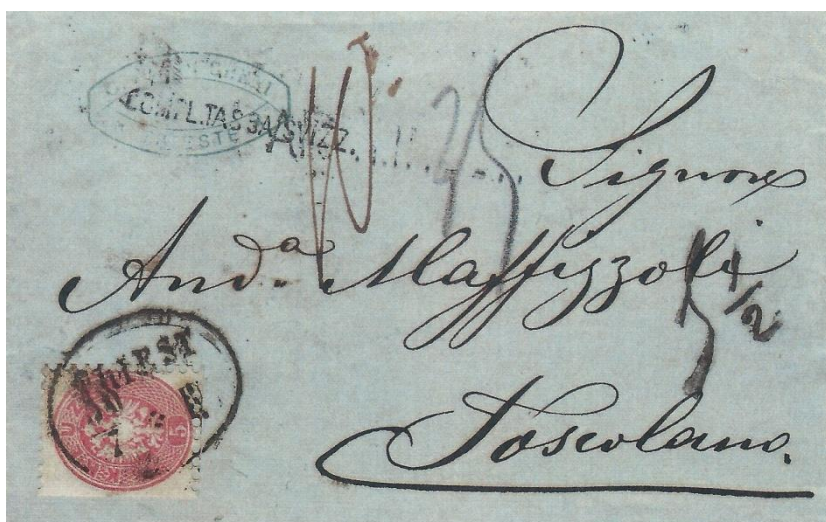 COMPL.TASSA SVIZZ.
10
25
Signore
Andª. Maffizzoli
5 1/2
Toscolano.
TRIEST
5